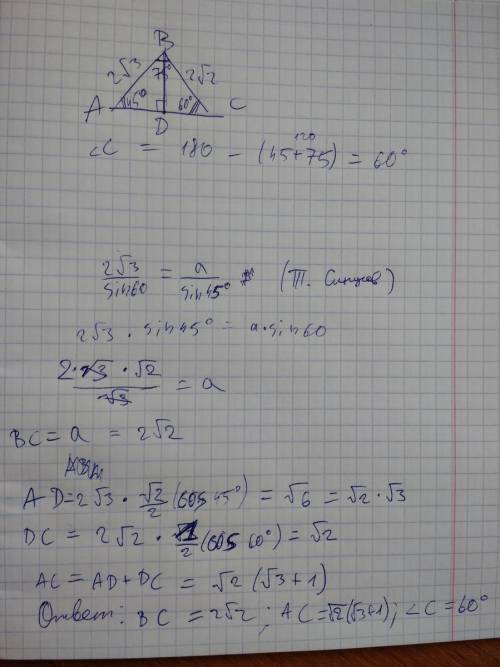 B
2√3 75° 2√2
A 45° 60° C
D
120
∠C = 180 - (45+75) = 60°
2√3/sin60 = a/sin45° (Т. Синусов)
2√3 · sin45° = a·sin60
2·√3·√2/√3 = a
BC = a = 2√2
AD = 2√3 · √2/2 (cos 45°) = √6 = √2·√3
DC = 2√2 · 1/2 (cos 60°) = √2
AC = AD + DC = √2 (√3+1)
Ответ: BC = 2√2; AC = √2(√3+1); ∠C = 60°